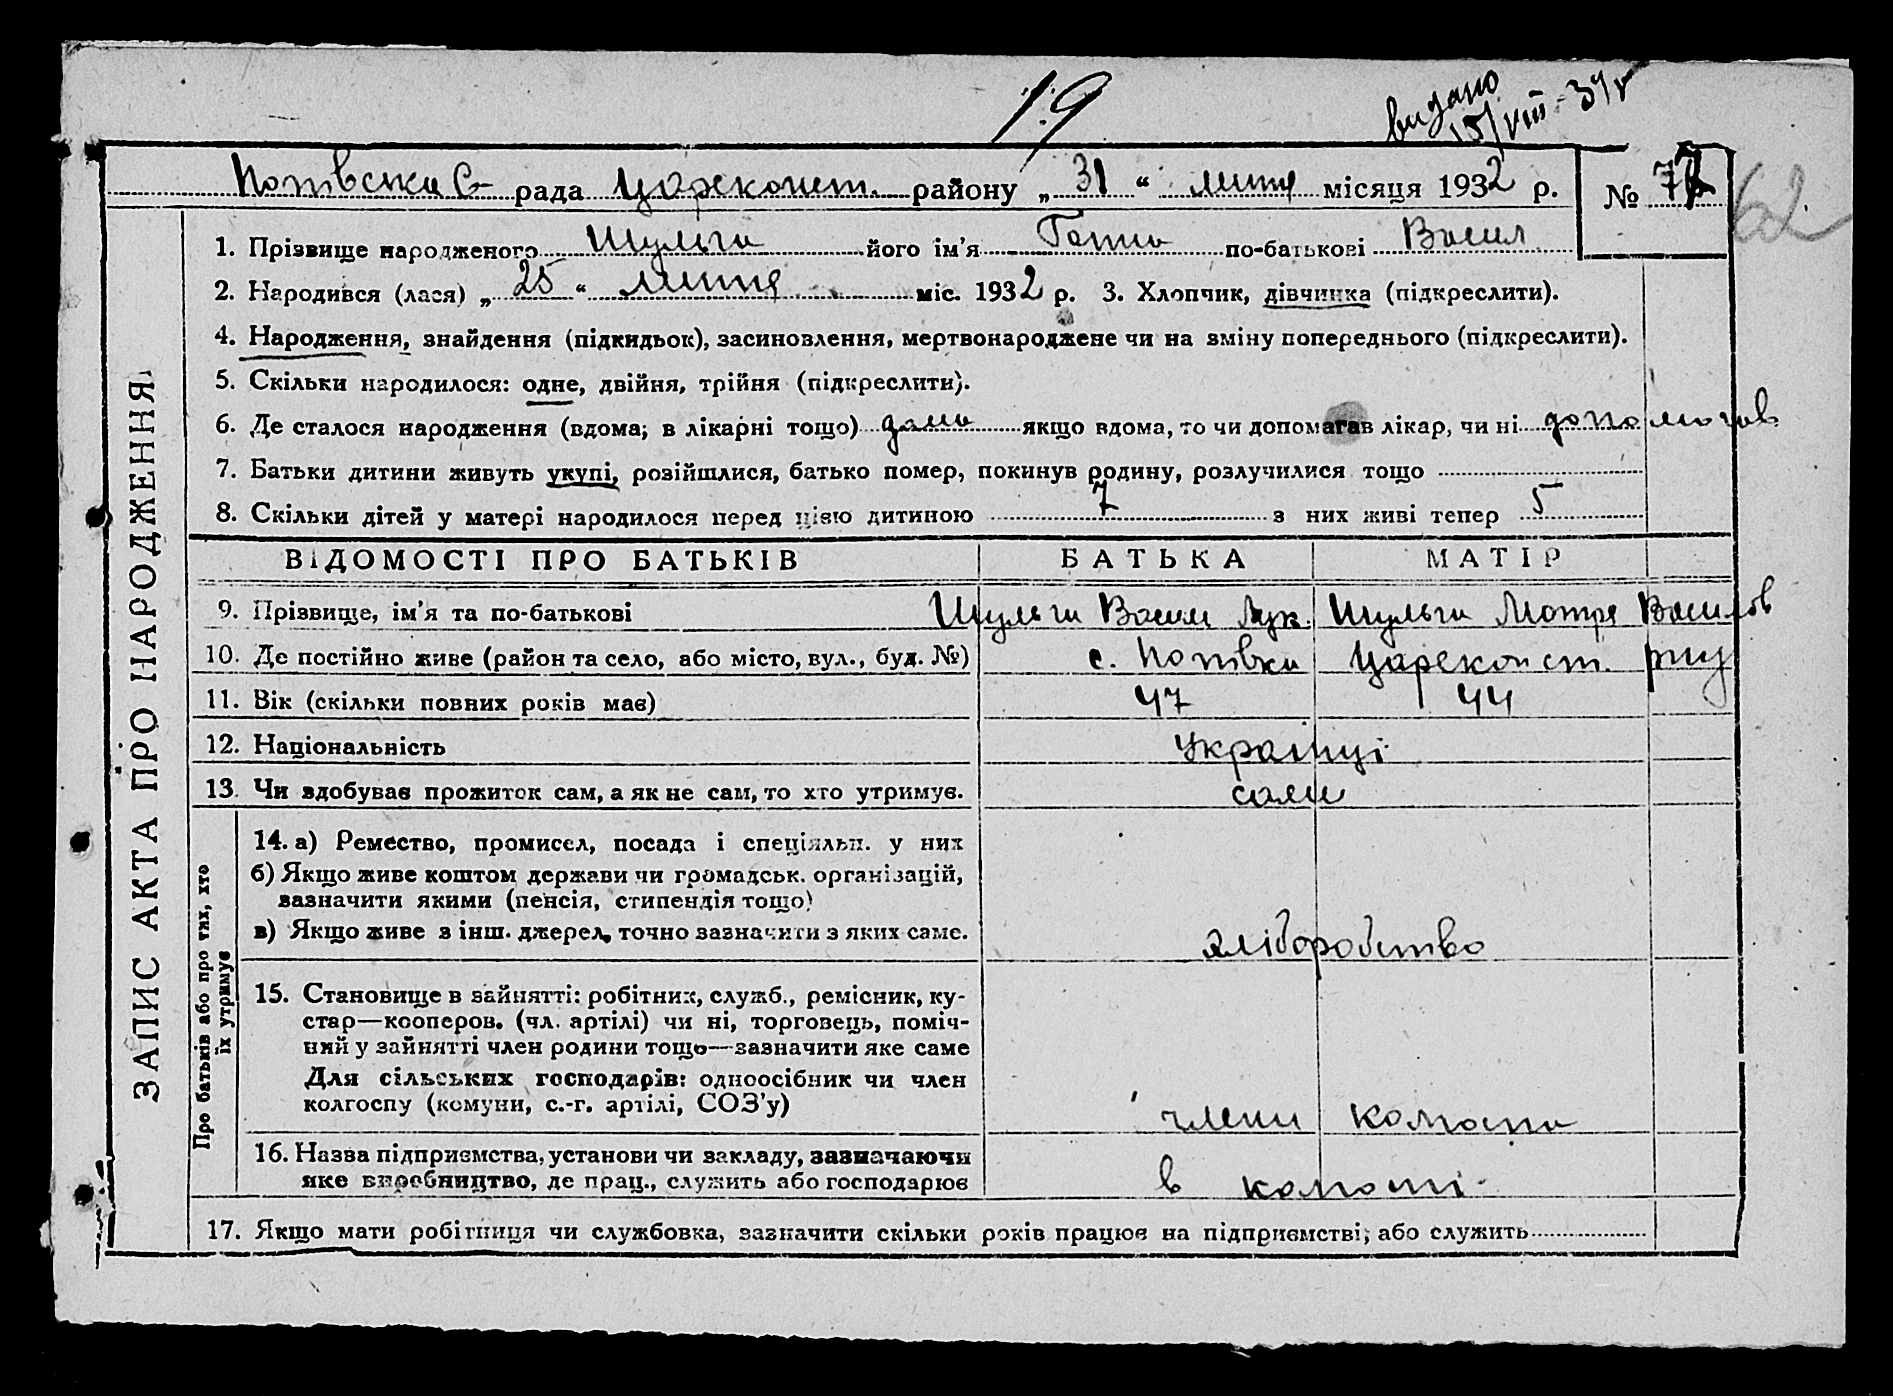 19
видано
15/VIII-34 г
62
Попівська С рада Цареконст. району „ 31 “ липня місяця 1932 р. № 77
1. Прізвище народженого Шульга його ім'я Ганна по-батькові Васил
2. Народився (лася) „ 25 “ липня міс. 1932 р. 3. Хлопчик, дівчинка (підкреслити).
4. Народження, знайдення (підкидьок), засиновлення, мертвонароджене чи на зміну попереднього (підкреслити).
5. Скільки народилося: одне, двійня, трійня (підкреслити).
6. Де сталося народження (вдома; в лікарні тощо) дома якщо вдома, то чи допомагав лікар, чи ні допомогав
7. Батьки дитини живуть укупі, розійшлися, батько помер, покинув родину, розлучилися тощо
8. Скільки дітей у матері народилося перед цією дитиною 7 з них живі тепер 5
ВІДОМОСТІ ПРО БАТЬКІВ БАТЬКА МАТІР
9. Прізвище, ім'я та по-батькові Шульга Васил Лук. Шульга Мотря Васил
10. Де постійно живе (район та село, або місто, вул., буд. №) с. Попівка Цареконст.
11. Вік (скільки повних років має) 47 44
12. Національність Українці
13. Чи здобуває прожиток сам, а як не сам, то хто утримує. сами
14. а) Ремество, промисел, посада і спеціяльн. у них
б) Якщо живе коштом держави чи громадськ. організацій,
зазначити якими (пенсія, стипендія тощо)
в) Якщо живе з інш. джерел, точно зазначити з яких саме. хліборобство
15. Становище в зайнятті: робітник, служб., ремісник, ку-
стар—кооперов. (чл. артілі) чи ні, торговець, поміч-
ний у зайнятті член родини тощо—зазначити яке саме
Для сільських господарів: одноосібник чи член
колгоспу (комуни, с.-г. артілі, СОЗ'у) члени колгоспа
16. Назва підприємства, установи чи закладу, зазначаючи
яке виробництво, де прац., служить або господарює в колгоспі
17. Якщо мати робітниця чи службовка, зазначити скільки років працює на підприємстві, або служить
ЗАПИС АКТА ПРО НАРОДЖЕННЯ
Про батьків або про тих, хто
їх утримує